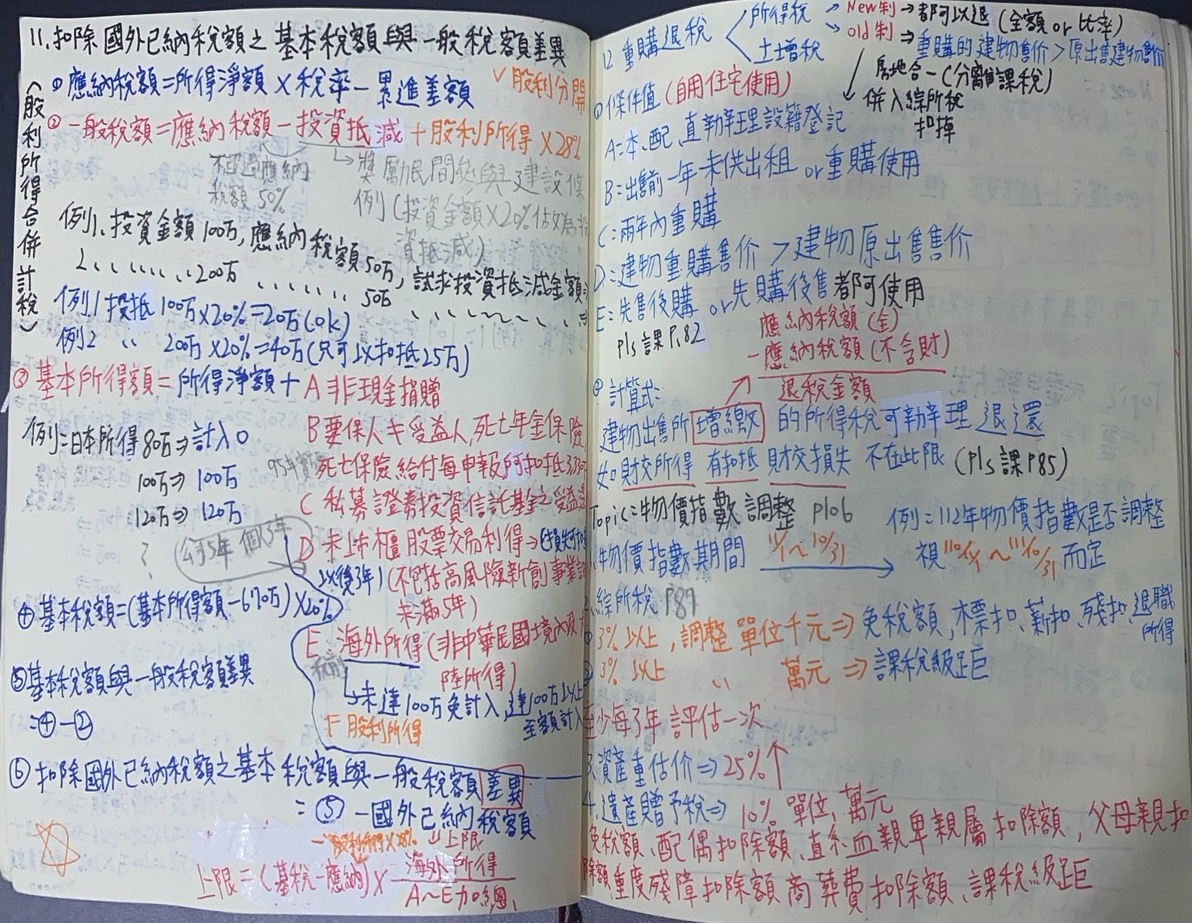 11.扣除國外已納稅額之基本稅額與一般稅額差異
(股利所得合併計稅)
①應納稅額=所得淨額×稅率-累進差額
✓股利分開
②一般稅額=應納稅額-投資抵減+股利所得×28%
不超過應納
稅額50%
↳獎勵民間參與建設條
例(投資金額×20%
資抵減)
例1、投資金額100萬,應納稅額50萬,試求投資抵減金額
2、、、、、、、200萬、、、、、、、50萬
例1投抵100萬×20%=20萬(ok)
例2 〃 200萬×20%=40萬(只可以扣抵25萬)
③基本所得額=所得淨額+A非現金捐贈
例=日本所得80萬⇒計入0
100萬⇒100萬
120萬⇒120萬
?
B要保人≠受益人,死亡年金保險
死亡保險給付每申報戶可扣抵3330
C私募證券投資信託基金之受益
D未上市櫃股票交易利得→
以後3年)(不包括高風險新創事業
未滿5年)
公司5年 個3年
④基本稅額=(基本所得額-670萬)×20%
E海外所得(非中華民國境內及大
陸所得)
↳未達100萬免計入,達100萬以上
全額計入
F股利所得
⑤基本稅額與一般稅額差異
=④-②
⑥扣除國外已納稅額之基本稅額與一般稅額差異
=⑤-國外已納稅額
-股利所得×28% ↓上限
上限=(基稅-應納)×海外所得
A~E加總
12.重購退稅
所得稅
土增稅
→New制→都可以退(金額or比率)
→old制⇒重購的建物售價>原出售建物售價
房地合一(分離課稅)
併入綜所稅
扣掉
①條件值(自用住宅使用)
A=本、配、直辦理設籍登記
B=出售前一年未供出租or重購使用
C=兩年內重購
D=建物重購售價>建物原出售售價
E=先售後購or先購後售都可使用
pls課P.82
應納稅額(含)
-應納稅額(不含財)
退稅金額
②計算式:
建物出售所增繳的所得稅可辦理退還
如財交所得有扣抵財交損失不在此限(Pls課P85)
Topic=物價指數調整 p106
例=112年物價指數是否調整
物價指數期間 11/1~10/31
視110/11/1~111/10/31而定
綜所稅P87
3%以上,調整單位千元⇒免稅額,標扣、薪扣、殘扣、退職
所得
3%以上 〃 萬元⇒課稅級距
至少每3年評估一次
3.資產重估價⇒25%↑
4.遺產贈予稅⇒10%單位,萬元
免稅額、配偶扣除額、直系血親卑親屬扣除額,父母親扣
除額重度殘障扣除額喪葬費扣除額、課稅級距